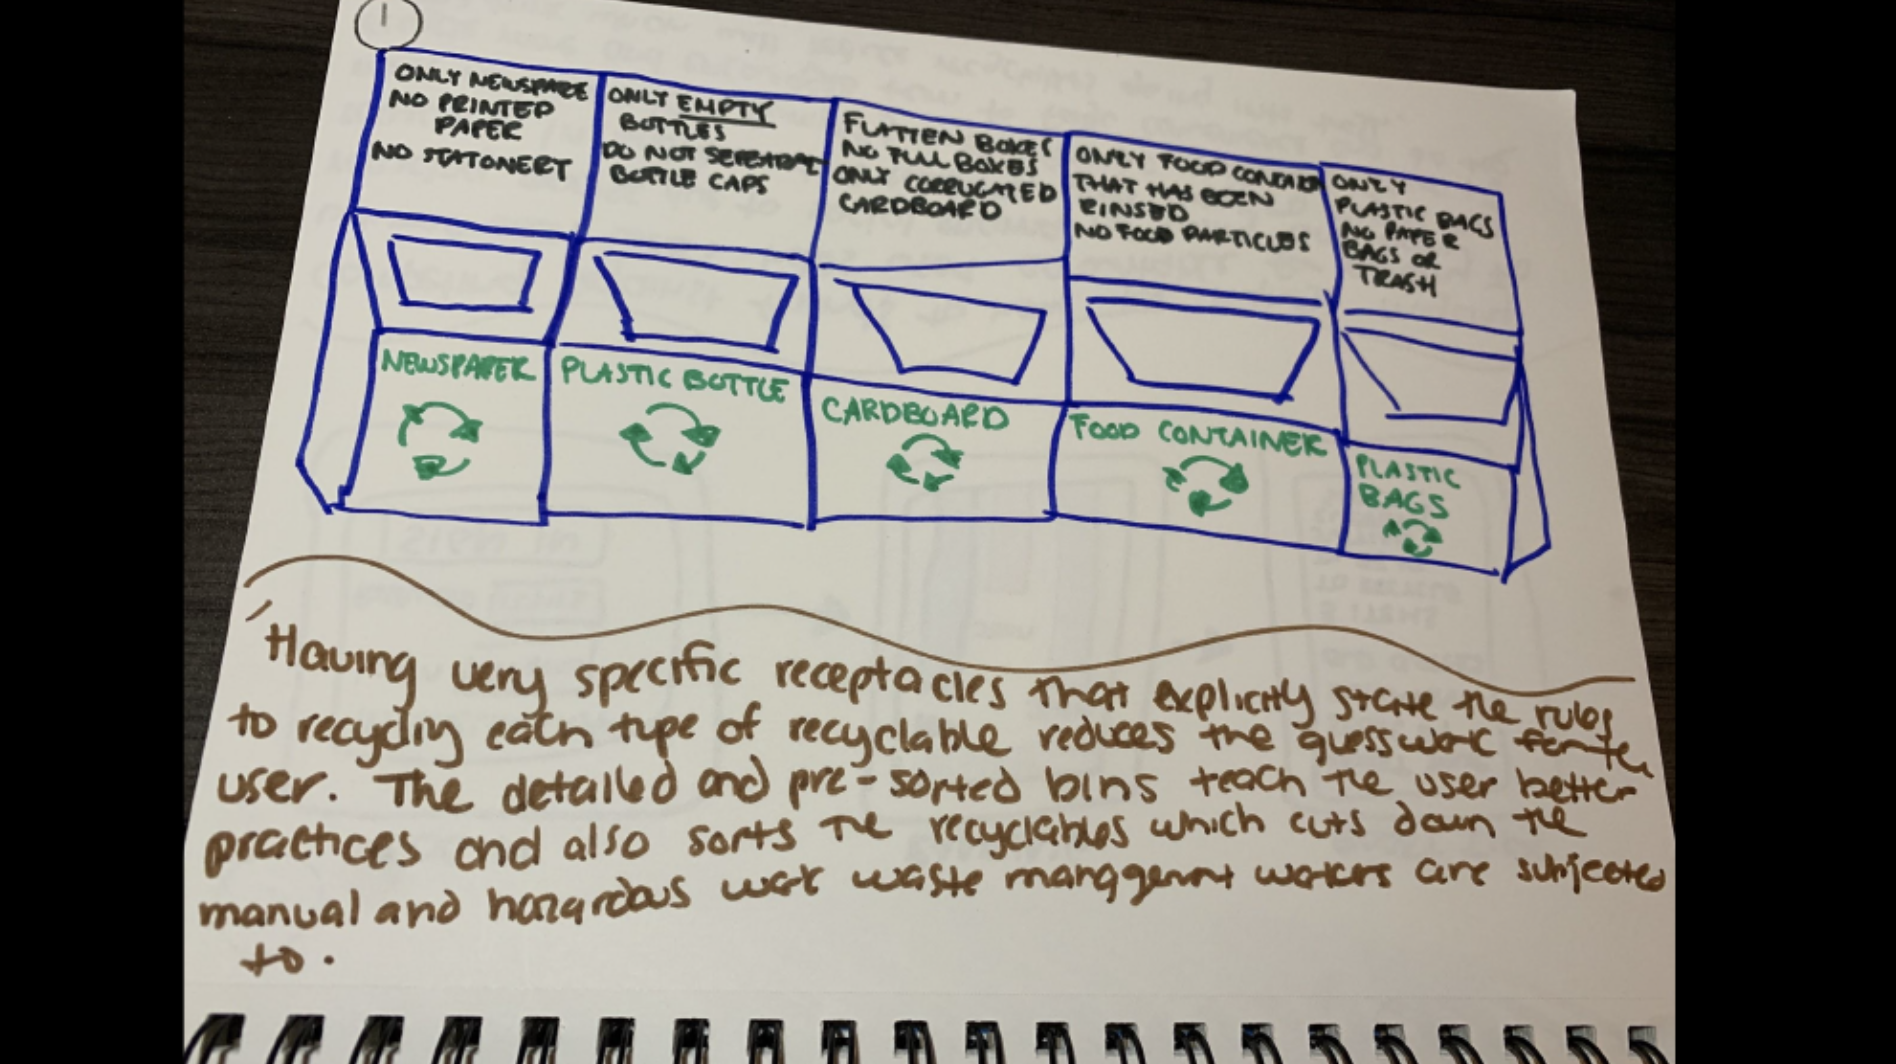 1
ONLY NEWSPAPE
NO PRINTED
PAPER
NO STATONERY
ONLY EMPTY
BOTTLES
DO NOT SEPERATE
BOTTLE CAPS
FLATTEN BOXES
NO FULL BOXES
ONLY CORRUGATED
CARDBOARD
ONLY FOOD CONTAINER
THAT HAS BEEN
RINSED
NO FOOD PARTICLES
ONLY
PLASTIC BAGS
NO PAPER
BAGS OR
TRASH
NEWSPAPER
PLASTIC BOTTLE
CARDBOARD
FOOD CONTAINER
PLASTIC
BAGS
Having very specific receptacles that explicitly state the rules
to recycling each type of recyclable reduces the guesswork for the
user. The detailed and pre-sorted bins teach the user better
practices and also sorts the recyclables which cuts down the
manual and hazardous work waste management workers are subjected
to.